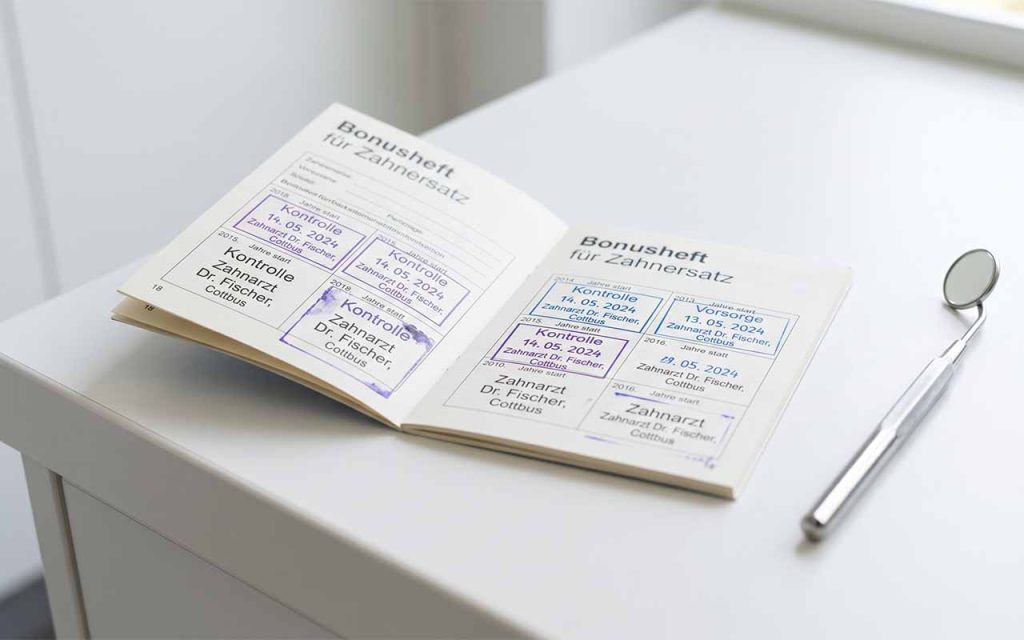 Bonusheft
für Zahnersatz
2018. Jahre start
Kontrolle
14. 05. 2024
Zahnarzt Dr. Fischer,
Cottbus
2015. Jahre start
Kontrolle
14. 05. 2024
Zahnarzt Dr. Fischer,
Cottbus
2015. Jahre start
Kontrolle
Zahnarzt
Dr. Fischer,
Cottbus
2018. Jahre start
Kontrolle
Zahnarzt
Dr. Fischer,
Cottbus
18
18
Bonusheft
für Zahnersatz
2014. Jahre start
Kontrolle
14. 05. 2024
Zahnarzt Dr. Fischer,
Cottbus
2013. Jahre start
Vorsorge
13. 05. 2024
Zahnarzt Dr. Fischer,
Cottbus
2015. Jahre start
Kontrolle
14. 05. 2024
Zahnarzt Dr. Fischer,
Cottbus
2016. Jahre start
05. 2024
Zahnarzt Dr. Fischer,
Cottbus
2010. Jahre start
Zahnarzt
Dr. Fischer,
Cottbus
2016. Jahre start
Zahnarzt
Zahnarzt Dr. Fischer,
Cottbus